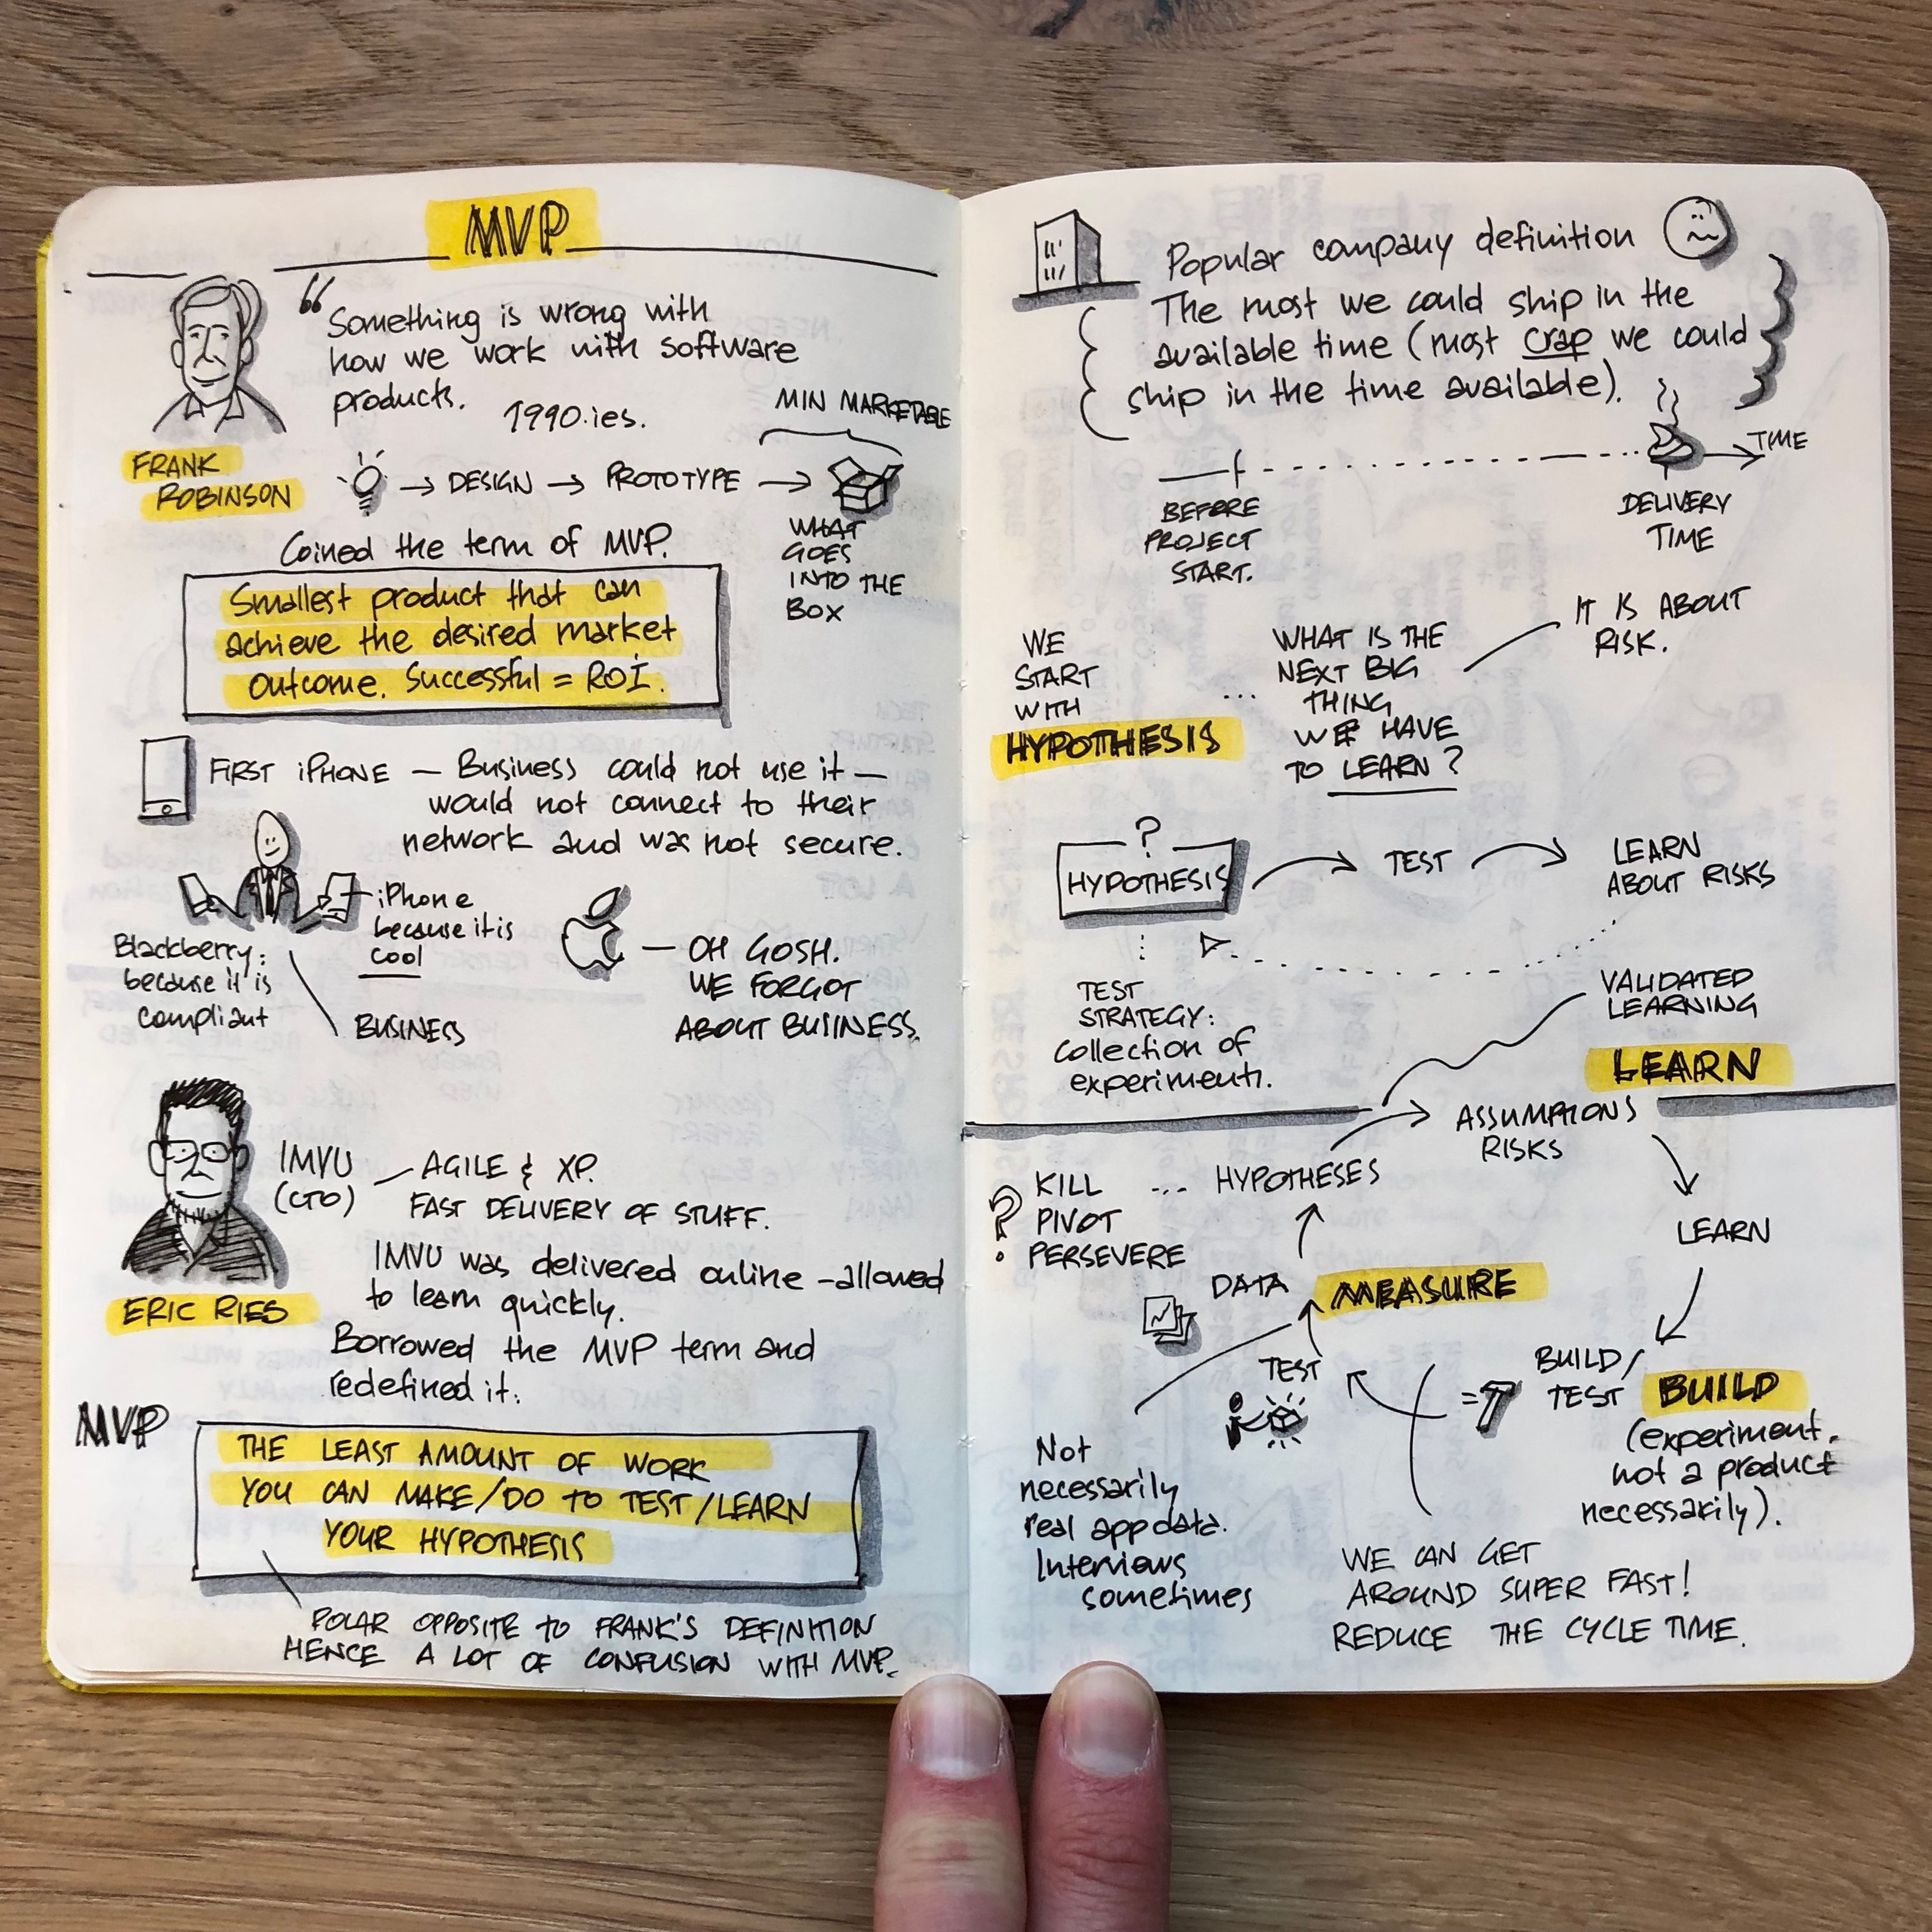 MVP
“Something is wrong with
how we work with software
products.
1990.ies.
FRANK
ROBINSON
MIN MARKETABLE
→ DESIGN → PROTOTYPE →
WHAT
GOES
INTO THE
BOX
Coined the term of MVP.
Smallest product that can
achieve the desired market
outcome. Successful = ROI.
FIRST iPHONE — Business could not use it —
would not connect to their
network and was not secure.
iPhone
because it is
cool
Blackberry:
because it is
compliant
BUSINESS
— OH GOSH.
WE FORGOT
ABOUT BUSINESS.
ERIC RIES
IMVU
(CTO)
AGILE & XP.
FAST DELIVERY OF STUFF.
IMVU was delivered online - allowed
to learn quickly.
Borrowed the MVP term and
redefined it:
MVP
THE LEAST AMOUNT OF WORK
YOU CAN MAKE/DO TO TEST/LEARN
YOUR HYPOTHESIS
POLAR OPPOSITE TO FRANK'S DEFINITION
HENCE A LOT OF CONFUSION WITH MVP.
Popular company definition
The most we could ship in the
available time (most crap we could
ship in the time available).
TIME
BEFORE
PROJECT
START.
DELIVERY
TIME
WE
START
WITH
HYPOTHESIS
...
WHAT IS THE
NEXT BIG
THING
WE HAVE
TO LEARN?
IT IS ABOUT
RISK.
?
HYPOTHESIS
TEST
LEARN
ABOUT RISKS
TEST
STRATEGY:
collection of
experiments.
VALIDATED
LEARNING
LEARN
ASSUMPTIONS
RISKS
?
KILL
PIVOT
PERSEVERE
... HYPOTHESES
LEARN
DATA
MEASURE
TEST
BUILD/
TEST
BUILD
(experiment.
not a product
necessarily).
Not
necessarily
real app data.
Interviews
sometimes
WE CAN GET
AROUND SUPER FAST!
REDUCE THE CYCLE TIME.